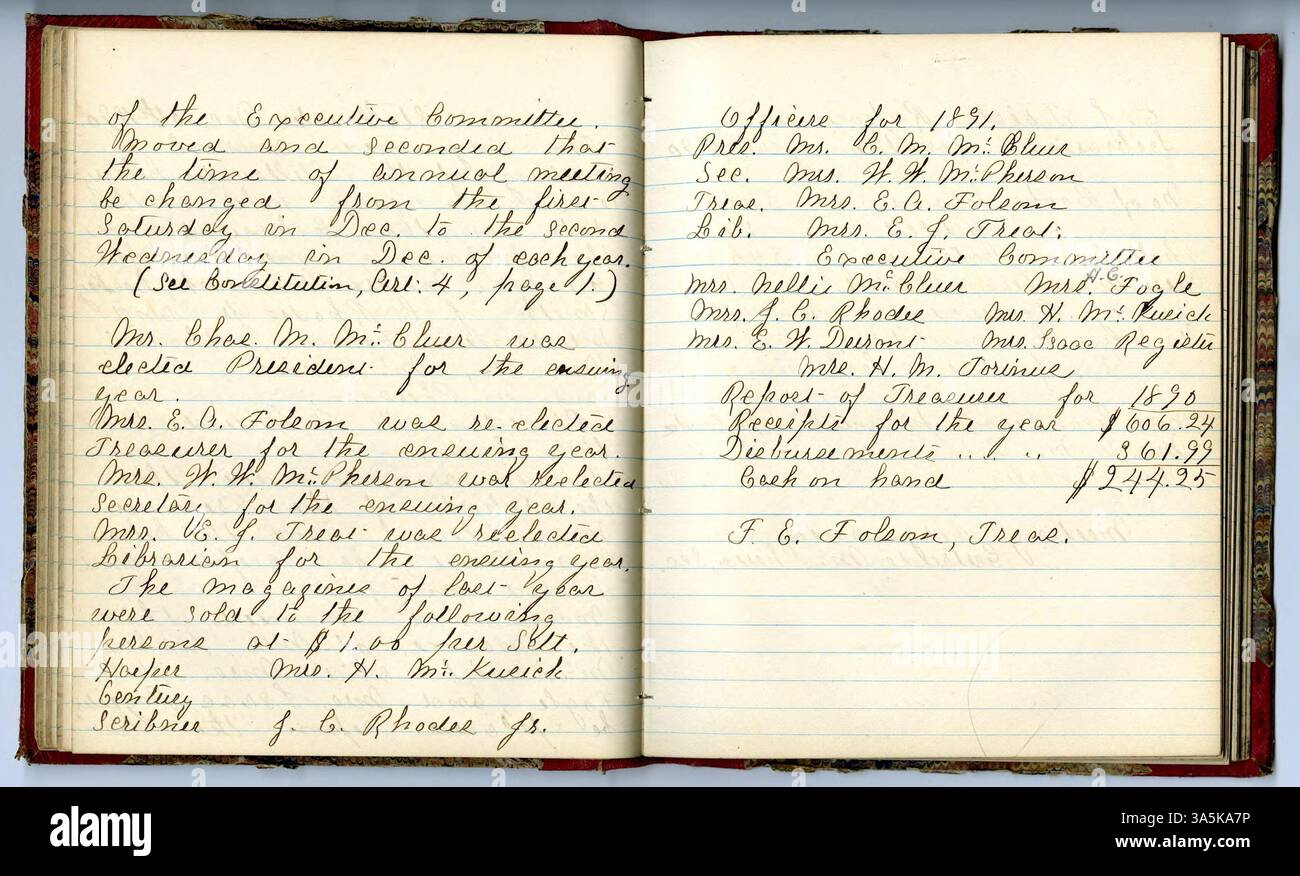 of the Executive Committee.
Moved and seconded that
the time of annual meeting
be changed from the first
Saturday in Dec. to the second
Wednesday in Dec. of each year.
(See Constitution, Art. 4, page 1.)
Mr. Chas. M. McCluer was
elected President for the ensuing
year.
Mrs. E. A. Folsom was re-elected
Treasurer for the ensuing year.
Mrs. W. W. McPherson was reelected
Secretary for the ensuing year.
Mrs. E. J. Treat was reelected
Librarian for the ensuing year.
The magazines of last year
were sold to the following
persons at $1.00 per Sett.
Harper Mrs. H. McKusick
Century
Scribner J. C. Rhodes Jr.
Officers for 1891.
Pres. Mr. C. M. McCluer
Sec. Mrs. W. W. McPherson
Treas. Mrs. E. A. Folsom
Lib. Mrs. E. J. Treat.
Executive Committee
Mrs. Nellie McCluer Mrs. H.C. Fogle
Mrs. J. C. Rhodes Mrs. H. McKusick
Mrs. E. W. Durant Mrs. Isaac Register
Mrs. H. M. Torinus
Report of Treasurer for 1890
Receipts for the year $606.24
Disbursements " " 361.99
Cash on hand $244.25
F. E. Folsom, Treas.
alamy
alamy
alamy
Image ID: 3A5KA7P
www.alamy.com